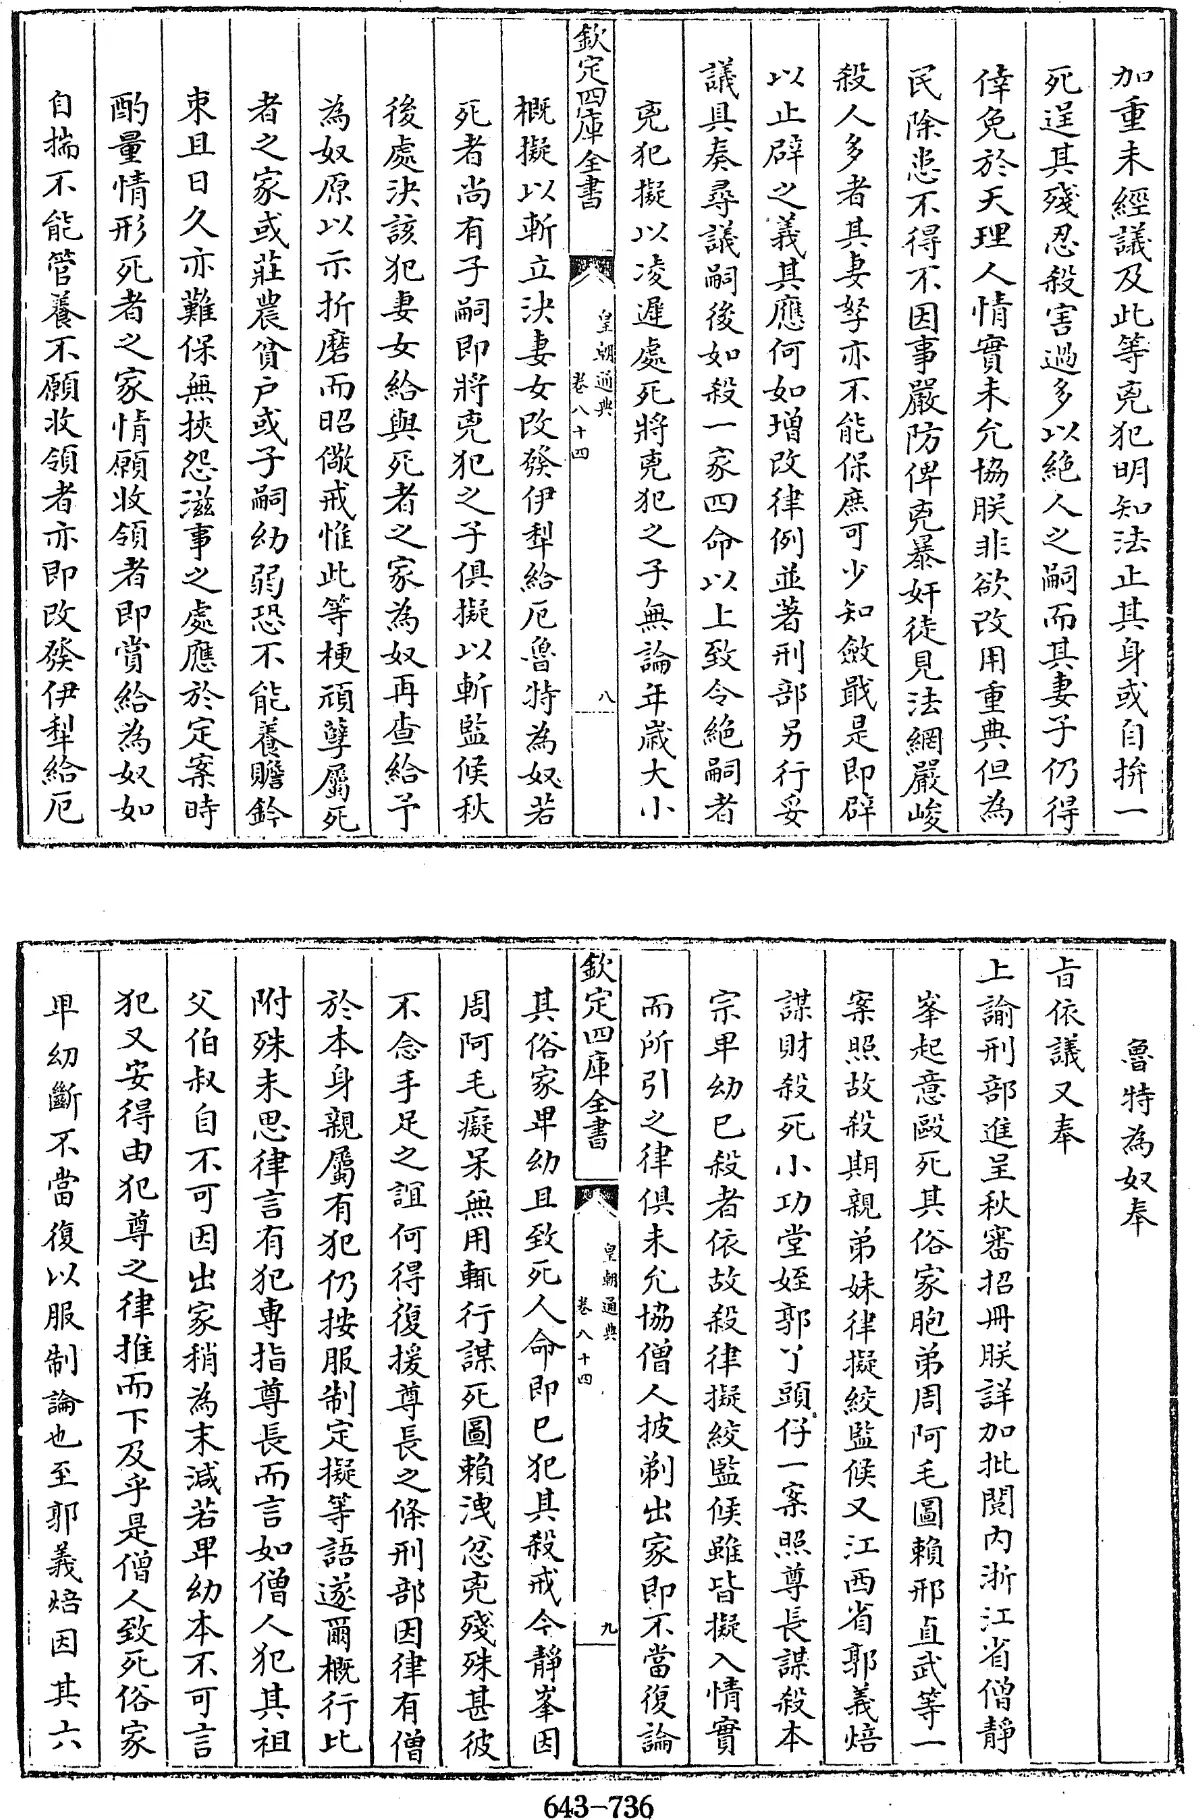 加重未經議及此等兇犯明知法止其身或自拚一
死逞其殘忍殺害過多以絶人之嗣而其妻子仍得
倖免於天理人情實未允協朕非欲改用重典但為
民除患不得不因事嚴防俾兇暴奸徒見法網嚴峻
殺人多者其妻孥亦不能保庶可少知斂戢是即辟
以止辟之義其應何如增改律例並著刑部另行妥
議具奏尋議嗣後如殺一家四命以上致令絶嗣者
兇犯擬以凌遲處死將兇犯之子無論年嵗大小
欽定四庫全書
皇朝通典
卷八十四
八
概擬以斬立決妻女改發伊犁給厄魯特為奴若
死者尚有子嗣即將兇犯之子俱擬以斬監候秋
後處決該犯妻女給與死者之家為奴再查給予
為奴原以示折磨而昭儆戒惟此等梗頑孽屬死
者之家或莊農貧户或子嗣幼弱恐不能養贍鈐
束且日久亦難保無挾怨滋事之處應於定案時
酌量情形死者之家情願收領者即賞給為奴如
自揣不能管養不願收領者亦即改發伊犁給厄
魯特為奴奉
旨依議又奉
上諭刑部進呈秋審招冊朕詳加批閲內浙江省僧靜
峯起意毆死其俗家胞弟周阿毛圖賴邢直武等一
案照故殺期親弟妹律擬絞監候又江西省郭義焙
謀財殺死小功堂姪郭丫頭仔一案照尊長謀殺本
宗卑幼已殺者依故殺律擬絞監候雖皆擬入情實
而所引之律俱未允協僧人披剃出家即不當復論
欽定四庫全書
皇朝通典
卷八十四
九
其俗家卑幼且致死人命即已犯其殺戒今靜峯因
周阿毛癡呆無用輒行謀死圖賴洩忿兇殘殊甚彼
不念手足之誼何得復援尊長之條刑部因律有僧
於本身親屬有犯仍按服制定擬等語遂爾概行比
附殊未思律言有犯專指尊長而言如僧人犯其祖
父伯叔自不可因出家稍為末減若卑幼本不可言
犯又安得由犯尊之律推而下及乎是僧人致死俗家
卑幼斷不當復以服制論也至郭義焙因其六
643-736